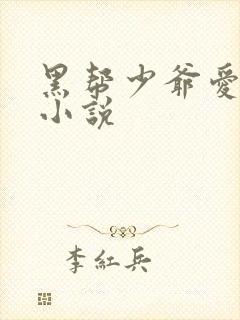 黑帮少爷愛
小說
李紅兵